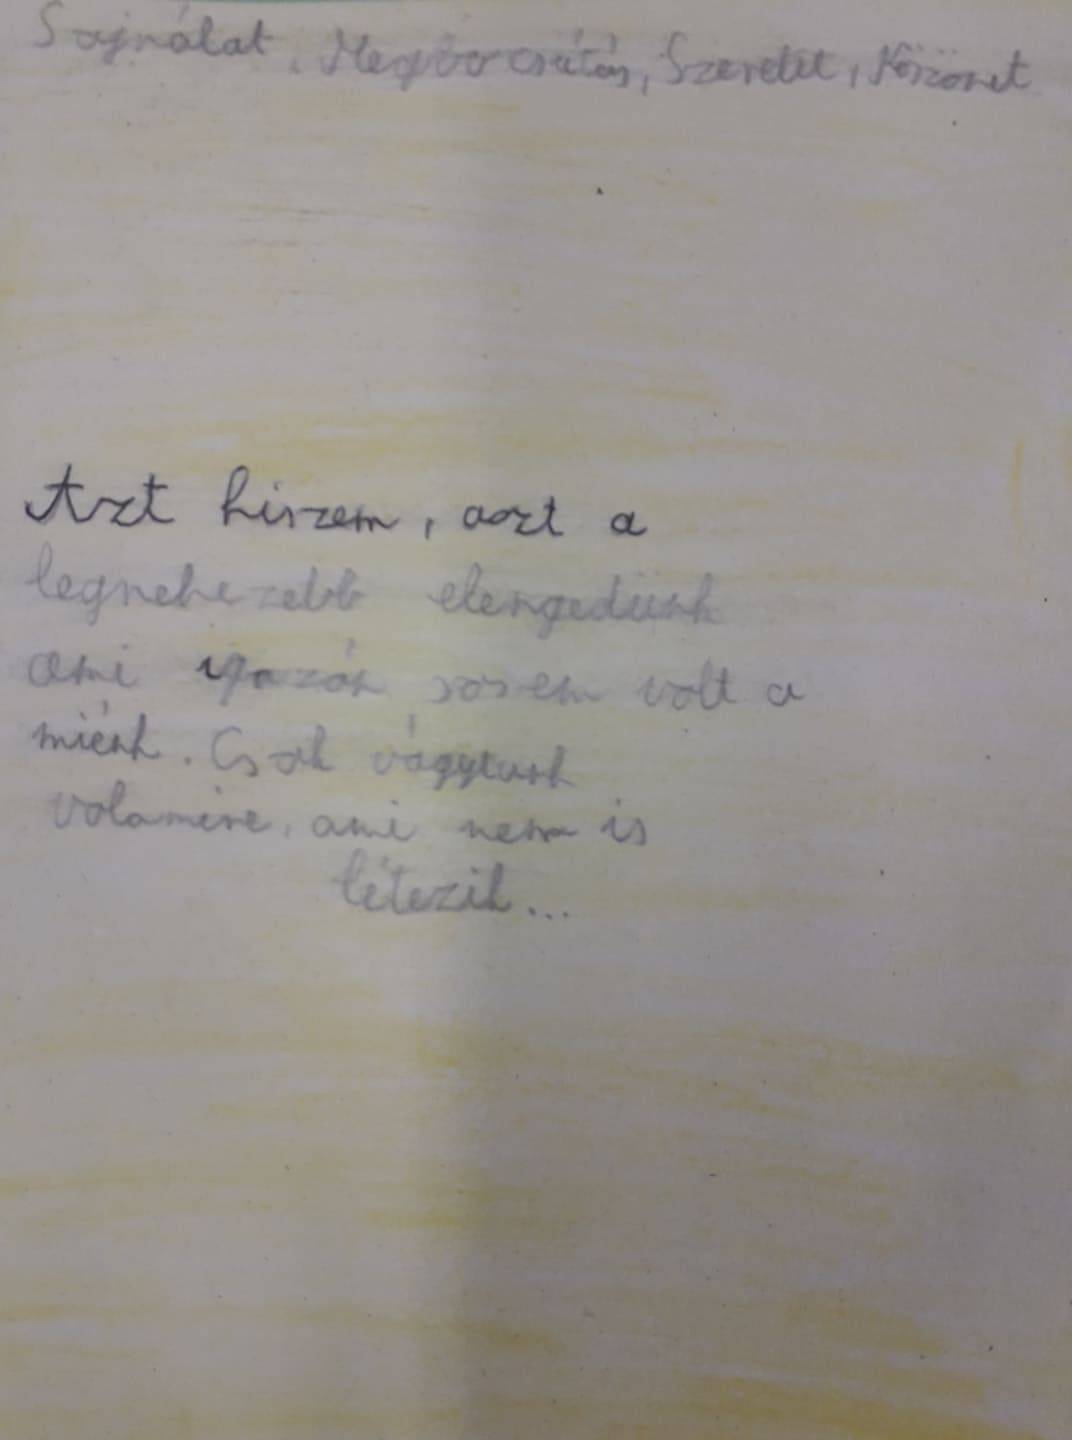 Sajnálat, Megbocsátás, Szeretet, Köszönet
Azt hiszem, azt a
legnehezebb elengedünk
ami igazán sosem volt a
miénk. Csak vágytunk
valamire, ami nem is
létezik...